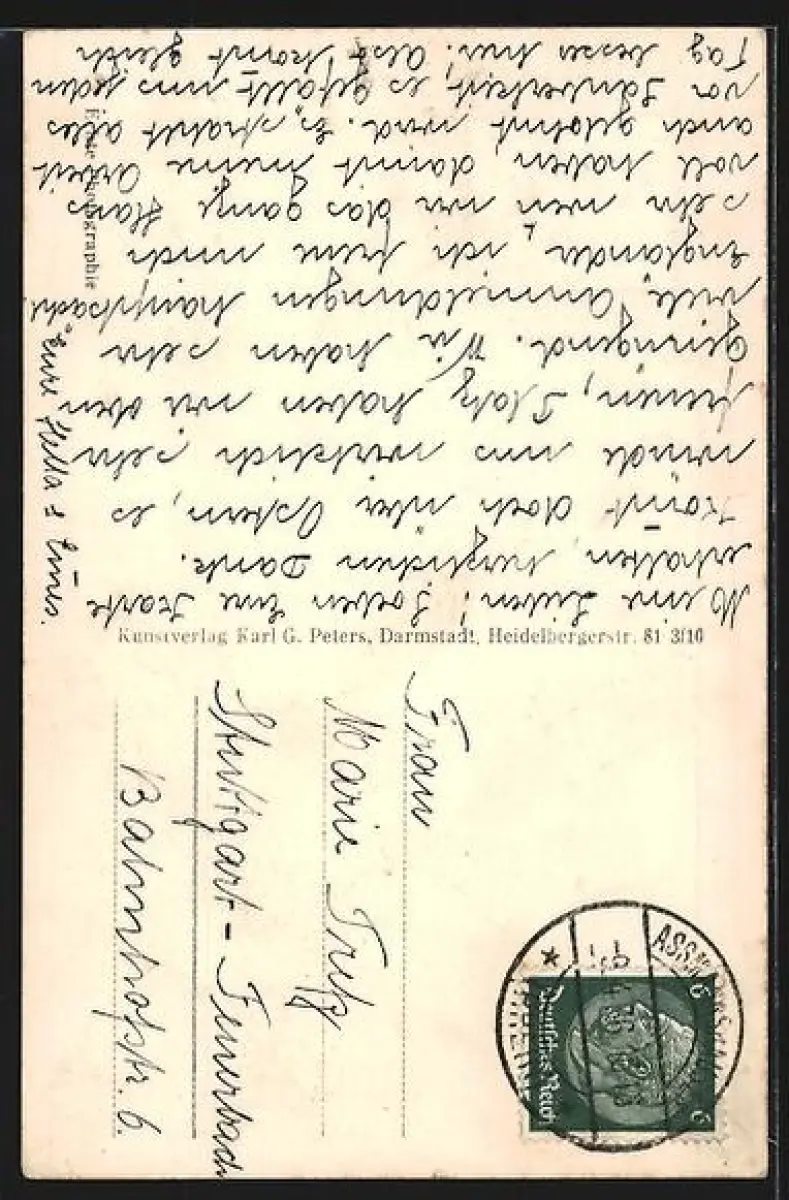 Meine Lieben! Soeben Eure Karte
erhalten, herzlichen Dank.
Kommt doch über Ostern, es
würde uns wirklich sehr
freuen, Platz haben wir oben
genügend. Wir haben sehr
viele Anmeldungen hauptsächl.
Engländer, ich freue mich
sehr wen wir das ganze Haus
voll haben, damit meine Arbeit
auch gelohnt wird. Es strahlt alles
vor Sauberkeit, es gefällt uns jeden
Tag besser hier. Also kommt gleich
Eure Hella &
Echte Photographie
Kunstverlag Karl G. Peters, Darmstadt, Heidelbergerstr. 81 3/10
Frau
Marie Tretz
Stuttgart-Feuerbach
Bahnhofstr. 6.
6 Deutsches Reich 6